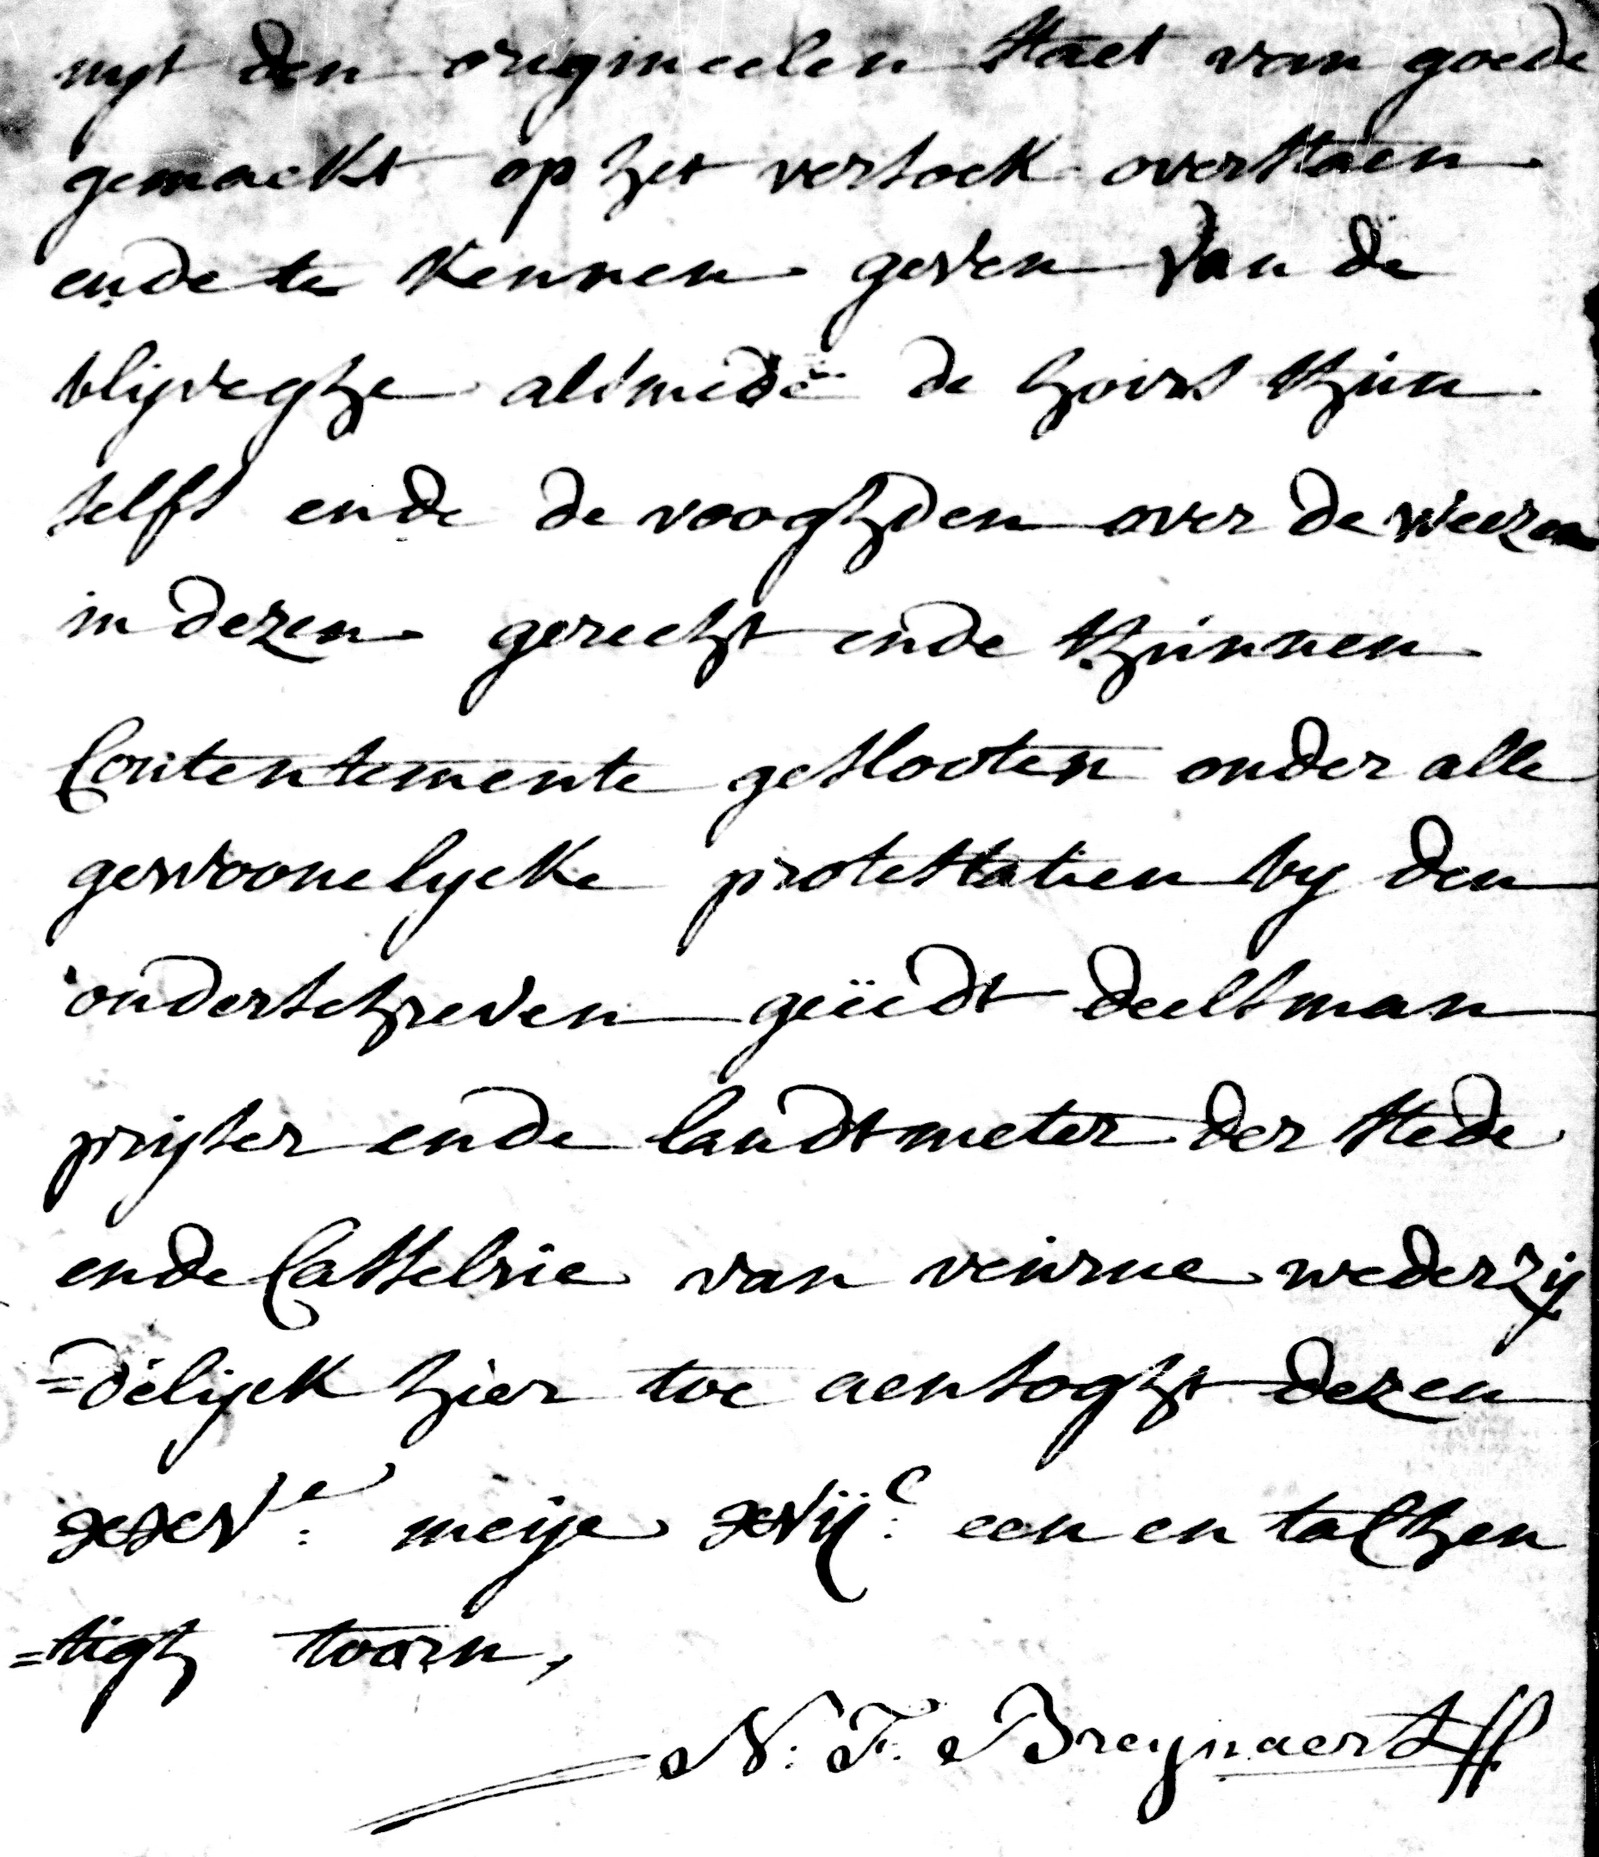 uyt den origineelen staet van goede
gemaeckt op het versoek overstaen
ende te kennen geven van de
blijveghe alsmede de hoirs thun
selfs ende de vooghden over de weezen
in dezen gerecht ende thunnen
Contentemente geslooten onder alle
gewoonelycke protestatien by den
onderschreven geëedt deelsman
prijser ende landtmeter der stede
ende Casselrie van veurne wederzy
=delijck hier toe aensoght dezen
xxxv.e meije xvij.c een en tachen
=tigh toorn,
N. F. Breynaert